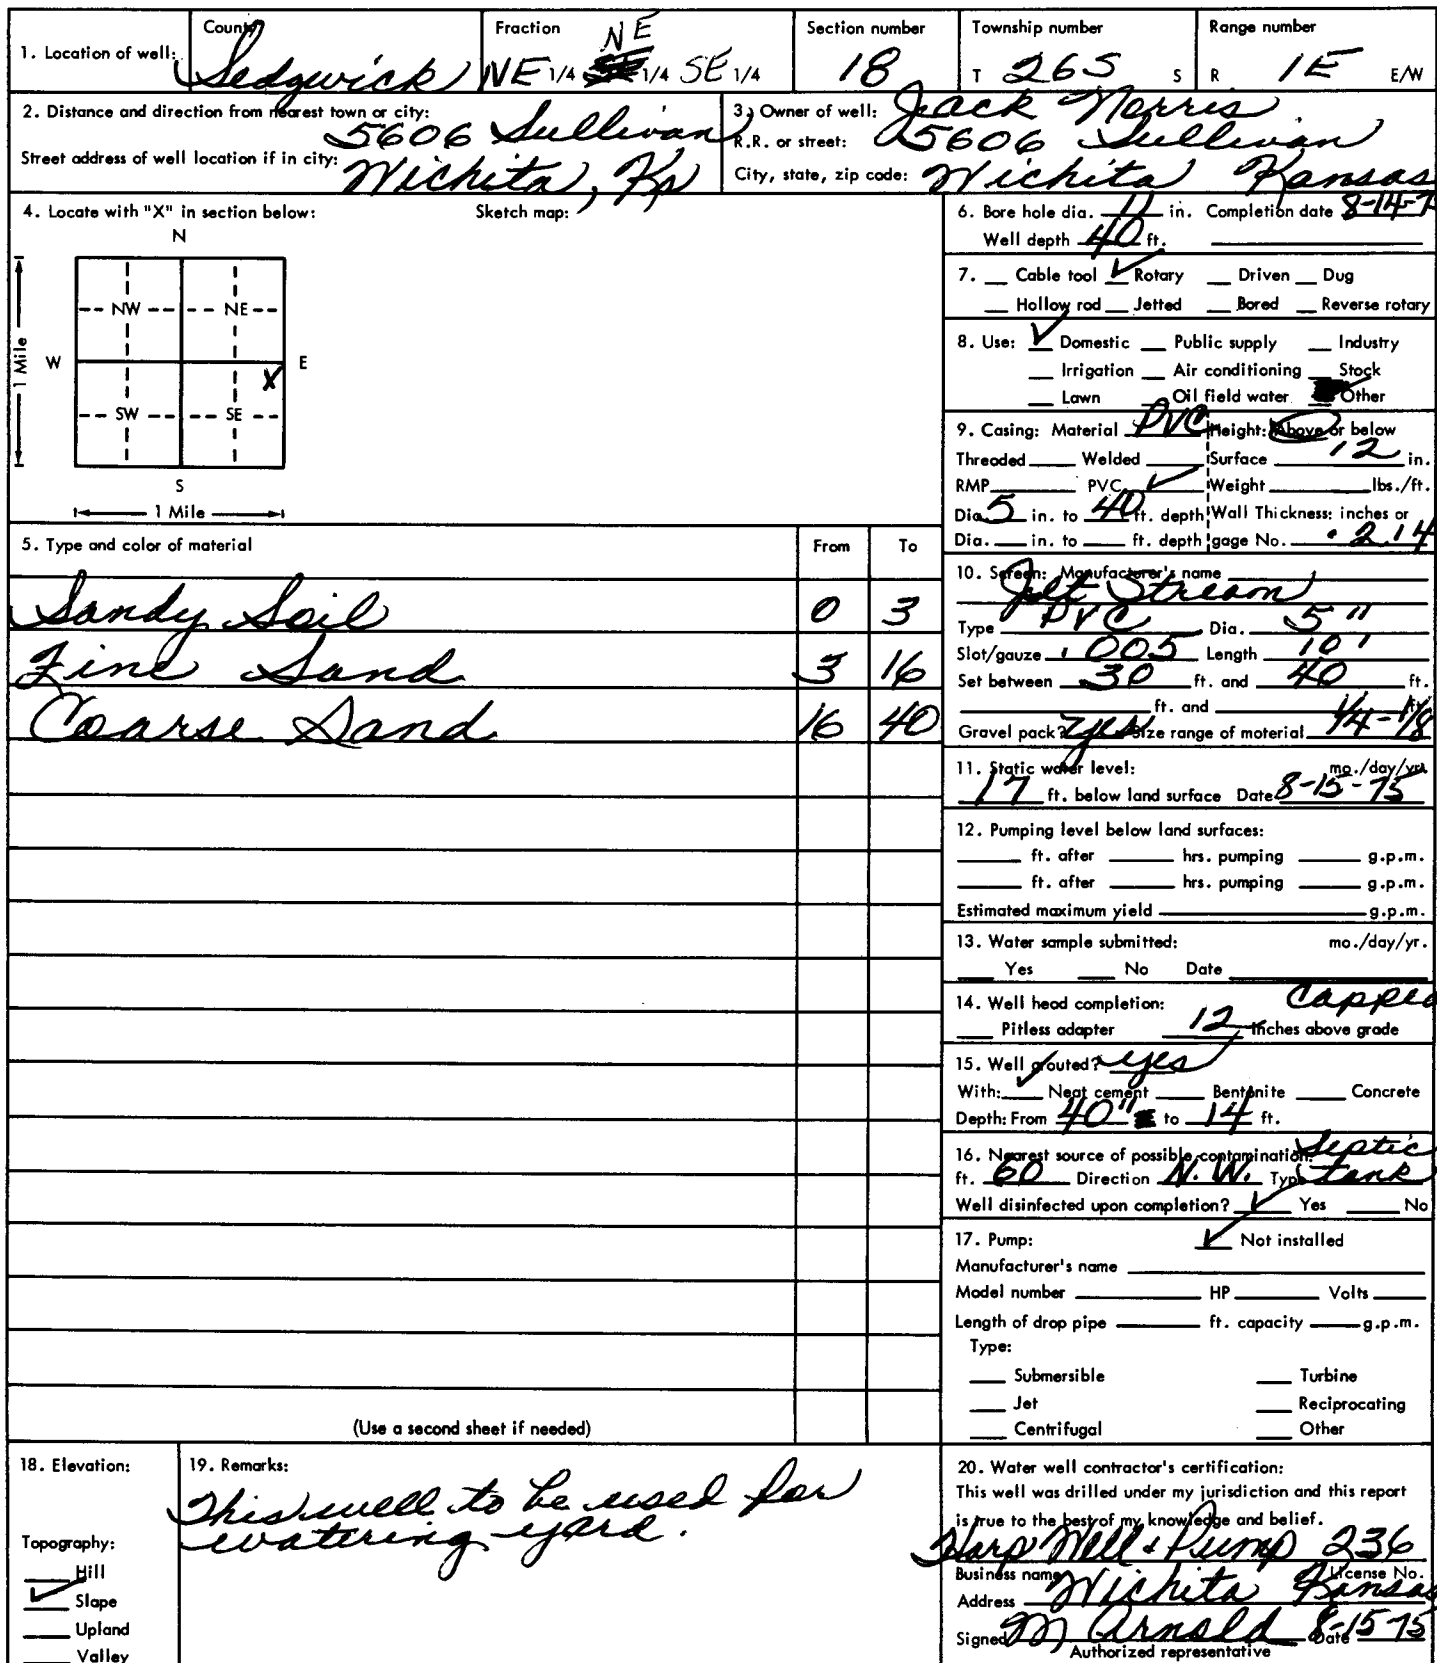 County Fraction Section number Township number Range number
NE
1. Location of well: Sedgwick NE 1/4 1/4 SE 1/4 18 T 26S S R 1E E/W
2. Distance and direction from nearest town or city: 3. Owner of well: Jack Norris
5606 Sullivan R.R. or street: 5606 Sullivan
Street address of well location if in city: Wichita, Ks City, state, zip code: Wichita Kansas
4. Locate with "X" in section below: Sketch map:
N
NW NE
W E
X
SW SE
S
1 Mile
1 Mile
5. Type and color of material From To
Sandy Soil 0 3
Fine Sand 3 16
Coarse Sand 16 40
(Use a second sheet if needed)
6. Bore hole dia. 11 in. Completion date 8-14-7
Well depth 40 ft.
7. Cable tool ✓ Rotary Driven Dug
Hollow rod Jetted Bored Reverse rotary
8. Use: ✓ Domestic Public supply Industry
Irrigation Air conditioning Stock
Lawn Oil field water Other
9. Casing: Material PVC Height: Above or below
Threaded Welded Surface 12 in.
RMP PVC ✓ Weight lbs./ft.
Dia. 5 in. to 40 ft. depth Wall Thickness: inches or
Dia. in. to ft. depth gage No. .214
10. Screen: Manufacturer's name
Jet Stream
Type PVC Dia. 5"
Slot/gauze .005 Length 10'
Set between 30 ft. and 40 ft.
ft. and ft.
Gravel pack? yes Size range of material 1/4-1/8
11. Static water level: mo./day/yr.
17 ft. below land surface Date 8-15-75
12. Pumping level below land surfaces:
ft. after hrs. pumping g.p.m.
ft. after hrs. pumping g.p.m.
Estimated maximum yield g.p.m.
13. Water sample submitted: mo./day/yr.
Yes No Date
14. Well head completion: Capped
Pitless adapter 12 Inches above grade
15. Well grouted? yes
With: ✓ Neat cement Bentonite Concrete
Depth: From 40" to 14 ft.
16. Nearest source of possible contamination: Septic
ft. 60 Direction N.W. Type tank
Well disinfected upon completion? ✓ Yes No
17. Pump: ✓ Not installed
Manufacturer's name
Model number HP Volts
Length of drop pipe ft. capacity g.p.m.
Type:
Submersible Turbine
Jet Reciprocating
Centrifugal Other
18. Elevation:
Topography:
Hill
✓ Slope
Upland
Valley
19. Remarks:
This well to be used for
watering yard.
20. Water well contractor's certification:
This well was drilled under my jurisdiction and this report
is true to the best of my knowledge and belief.
Harp Well & Pump 236
Business name License No.
Address Wichita Kansas
Signed M Arnold Date 8-15-75
Authorized representative